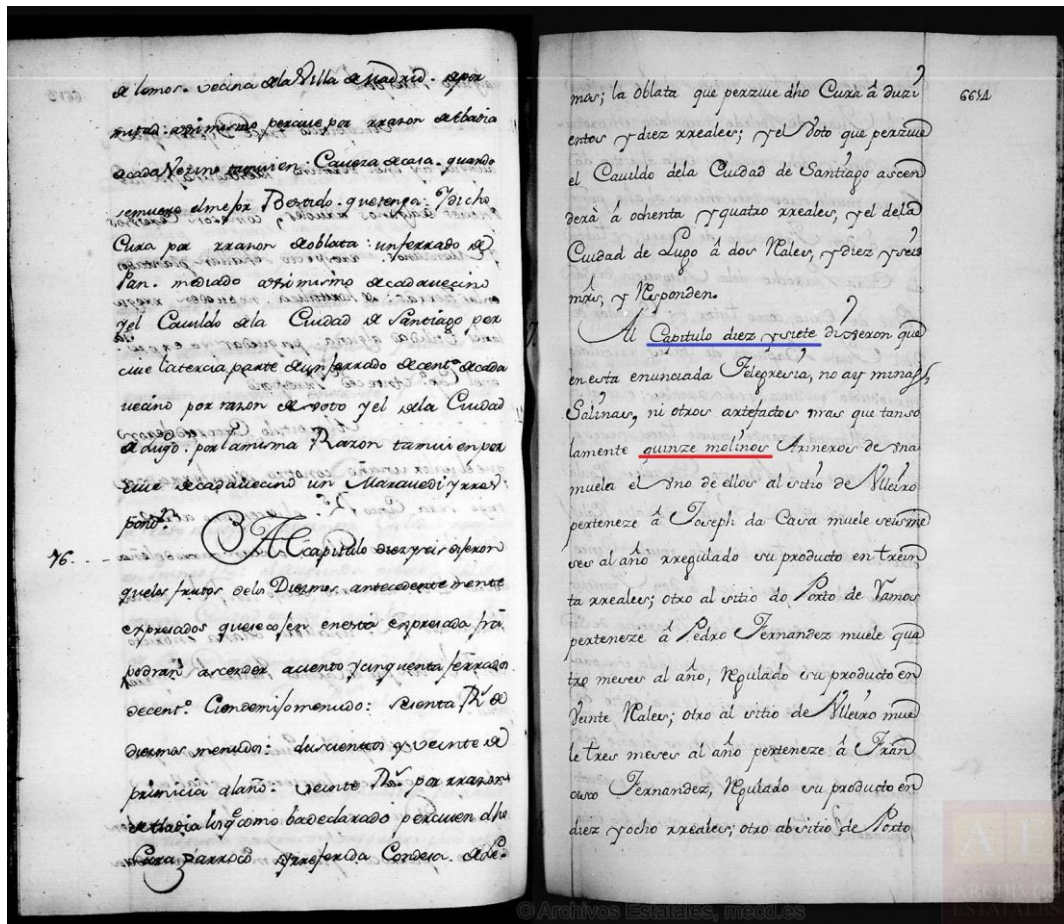 de lemos. vecina dela Villa de Madrid. depor
mitad. asimismo percive por rrazon deAbadia
acada Vezino tamvien: Cavera decasa. quando
semuere elmejor Bestido. quetenga: Ydicho
Cura por rrazon deoblata: unferrado de
Pan. mediado asimismo decadavecino
yel Cauildo dela Ciudad de Santiago por
cive latercia parte deunferrado decent.º decada
vecino por razon devoto yel dela Ciudad
deLugo. por lamisma Razon tamvien per
cive decadavecino un Maravedi yrres
pond.ⁿ
76.
Al capitulo diezyseis dijeron
quelos frutos delos Diezmos. antecedentemente
expresados quesecojen enesta expresada fra
podrán ascender aciento ycinquenta ferrados
decent.º Ciendemijomenudo: sesenta R.ˢ de
diezmos menudos: duscientos y veinte de
primicia alaño. veinte R.ˢ por rrazon
deabadia losq.ᵉ como badeclarado percuien dho
Cura parroco yrreferida Condesa. deLe-
6614
mos; la oblata que perzive dho Cura â duzi
entos y diez rreales; y el Voto que perzive
el Cauildo dela Ciudad de Santiago ascen
derà â ochenta y quatro rreales, y el dela
Ciudad de Lugo â dos Rales, y diez y seis
mrs, y Responden.
Al Capitulo diez y siete dixeron que
en esta enunciada Felegresia, no ay minas,
Salinas, ni otros artefactos mas que tanso
lamente quinze molinos Arineros de vna
muela el vno de ellos al sitio de Vlleiro
perteneze â Joseph da Casa muele seisme
ses al año rregulado su producto en trein
ta rreales; otro al sitio do Porto de Vamos
perteneze â Pedro Fernandez muele qua
tro meses al año, Regulado su producto en
Veinte Rales; otro al sitio de Vlleiro mue
le tres meses al año perteneze â Fran
cisco Fernandez, Regulado su producto en
diez y ocho rreales; otro alsitio de Porto
AE
ARCHIVOS
ESTATALES
© Archivos Estatales, mecd.es